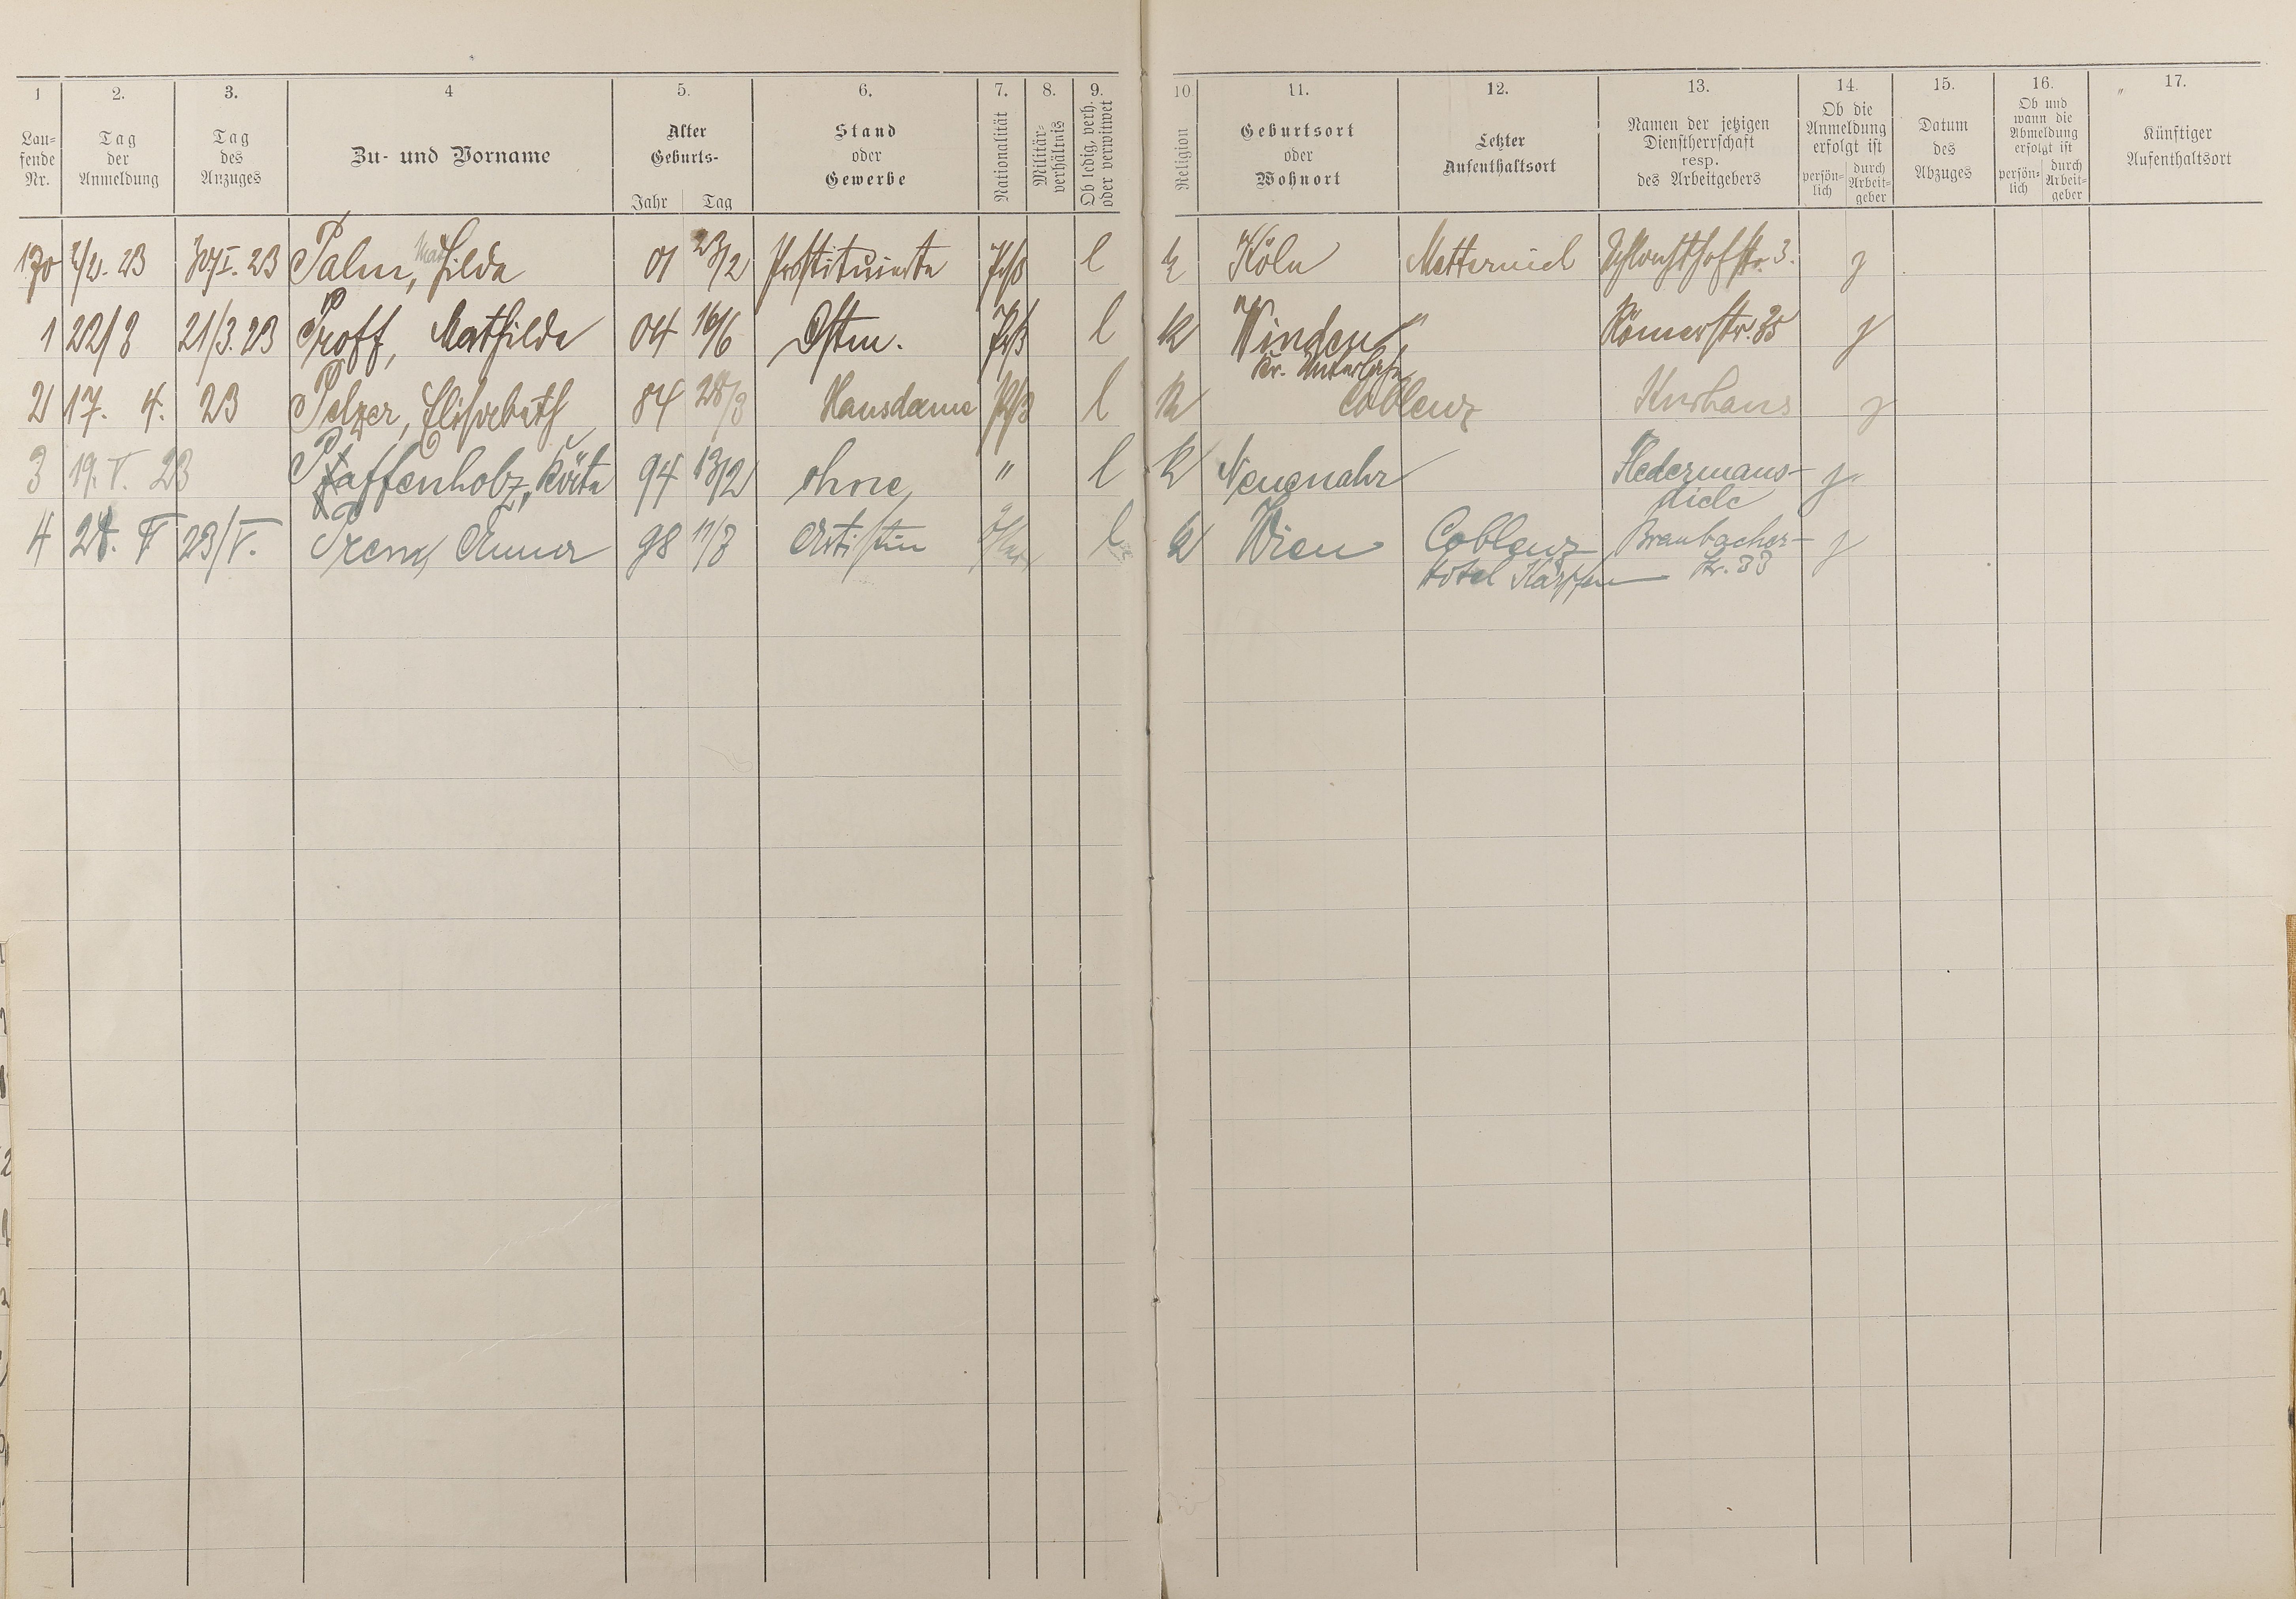 1 2. 3. 4 5. 6. 7. 8. 9. 10 11. 12. 13. 14. 15. 16. 17.
Lau-
fende
Nr.
Tag
der
Anmeldung
Tag
des
Anzuges
Zu- und Vorname
Alter
Geburts-
Jahr Tag
Stand
oder
Gewerbe
Nationalität
Militär-
verhältnis
Ob ledig, verh.
oder verwitwet
Religion
Geburtsort
oder
Wohnort
Letzter
Aufenthaltsort
Namen der jetzigen
Dienstherrschaft
resp.
des Arbeitgebers
Ob die
Anmeldung
erfolgt ist
persön-
lich
durch
Arbeit-
geber
Datum
des
Abzuges
Ob und
wann die
Abmeldung
erfolgt ist
persön-
lich
durch
Arbeit-
geber
Künftiger
Aufenthaltsort
170 2/2. 23 30/I. 23 Palm, Hilda 01 23/2 Prostituierte Prß l k Köln Metternich Schlachthofstr. 3. j
1 22/3 21/3. 23 Proff, Mathilde 04 16/6 Dstm. Prß l k Winden " Römerstr. 35 j
Kr. Unterlahn
2 17. 4. 23 Pelzer, Elisabeth 84 28/3 Hausdame Prß l k Coblenz Kurhaus j
3 19. V. 23 Pfaffenholz, Käte 94 13/2 ohne " l k Neuenahr Fledermaus-
diele j
4 24. V 23/V. Anna 98 17/3 Artistin l k Wien Coblenz
Hotel Karpfen Braubacher-
str. 33 j